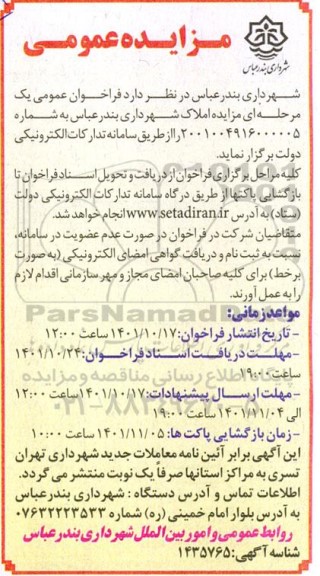 مزایده عمومی
شهرداری بندرعباس
شهرداری بندرعباس در نظر دارد فراخوان عمومی یک
مرحله‌ای مزایده املاک شهرداری بندرعباس به شماره
۲۰۰۱۰۰۴۹۱۶۰۰۰۰۰۵ را از طریق سامانه تدارکات الکترونیکی
دولت برگزار نماید.
کلیه مراحل برگزاری فراخوان از دریافت و تحویل اسناد فراخوان تا
بازگشایی پاکتها از طریق درگاه سامانه تدارکات الکترونیکی دولت
(ستاد) به آدرس www.setadiran.ir انجام خواهد شد.
متقاضیان شرکت در فراخوان در صورت عدم عضویت در سامانه،
نسبت به ثبت نام و دریافت گواهی امضای الکترونیکی (به صورت
برخط) برای کلیه صاحبان امضای مجاز و مهر سازمانی اقدام لازم
را به عمل آورند.
مواعد زمانی:
- تاریخ انتشار فراخوان: ۱۴۰۱/۱۰/۱۷ ساعت ۱۲:۰۰
- مهلت دریافت اسناد فراخوان: ۱۴۰۱/۱۰/۲۴
ساعت ۱۹:۰۰
- مهلت ارسال پیشنهادات: ۱۴۰۱/۱۰/۱۷ ساعت ۱۲:۰۰
الی ۱۴۰۱/۱۱/۰۴ ساعت ۱۹:۰۰
- زمان بازگشایی پاکت ها: ۱۴۰۱/۱۱/۰۵ ساعت ۱۰:۰۰
این آگهی برابر آئین نامه معاملات جدید شهرداری تهران
تسری به مراکز استانها صرفاً یک نوبت منتشر می گردد.
اطلاعات تماس و آدرس دستگاه : شهرداری بندرعباس
به آدرس بلوار امام خمینی (ره) شماره ۰۷۶۳۲۲۲۳۵۳۳
روابط عمومی و امور بین الملل شهرداری بندرعباس
شناسه آگهی: ۱۴۳۵۷۶۵
ParsNamadData
پایگاه اطلاع رسانی مناقصه و مزایده